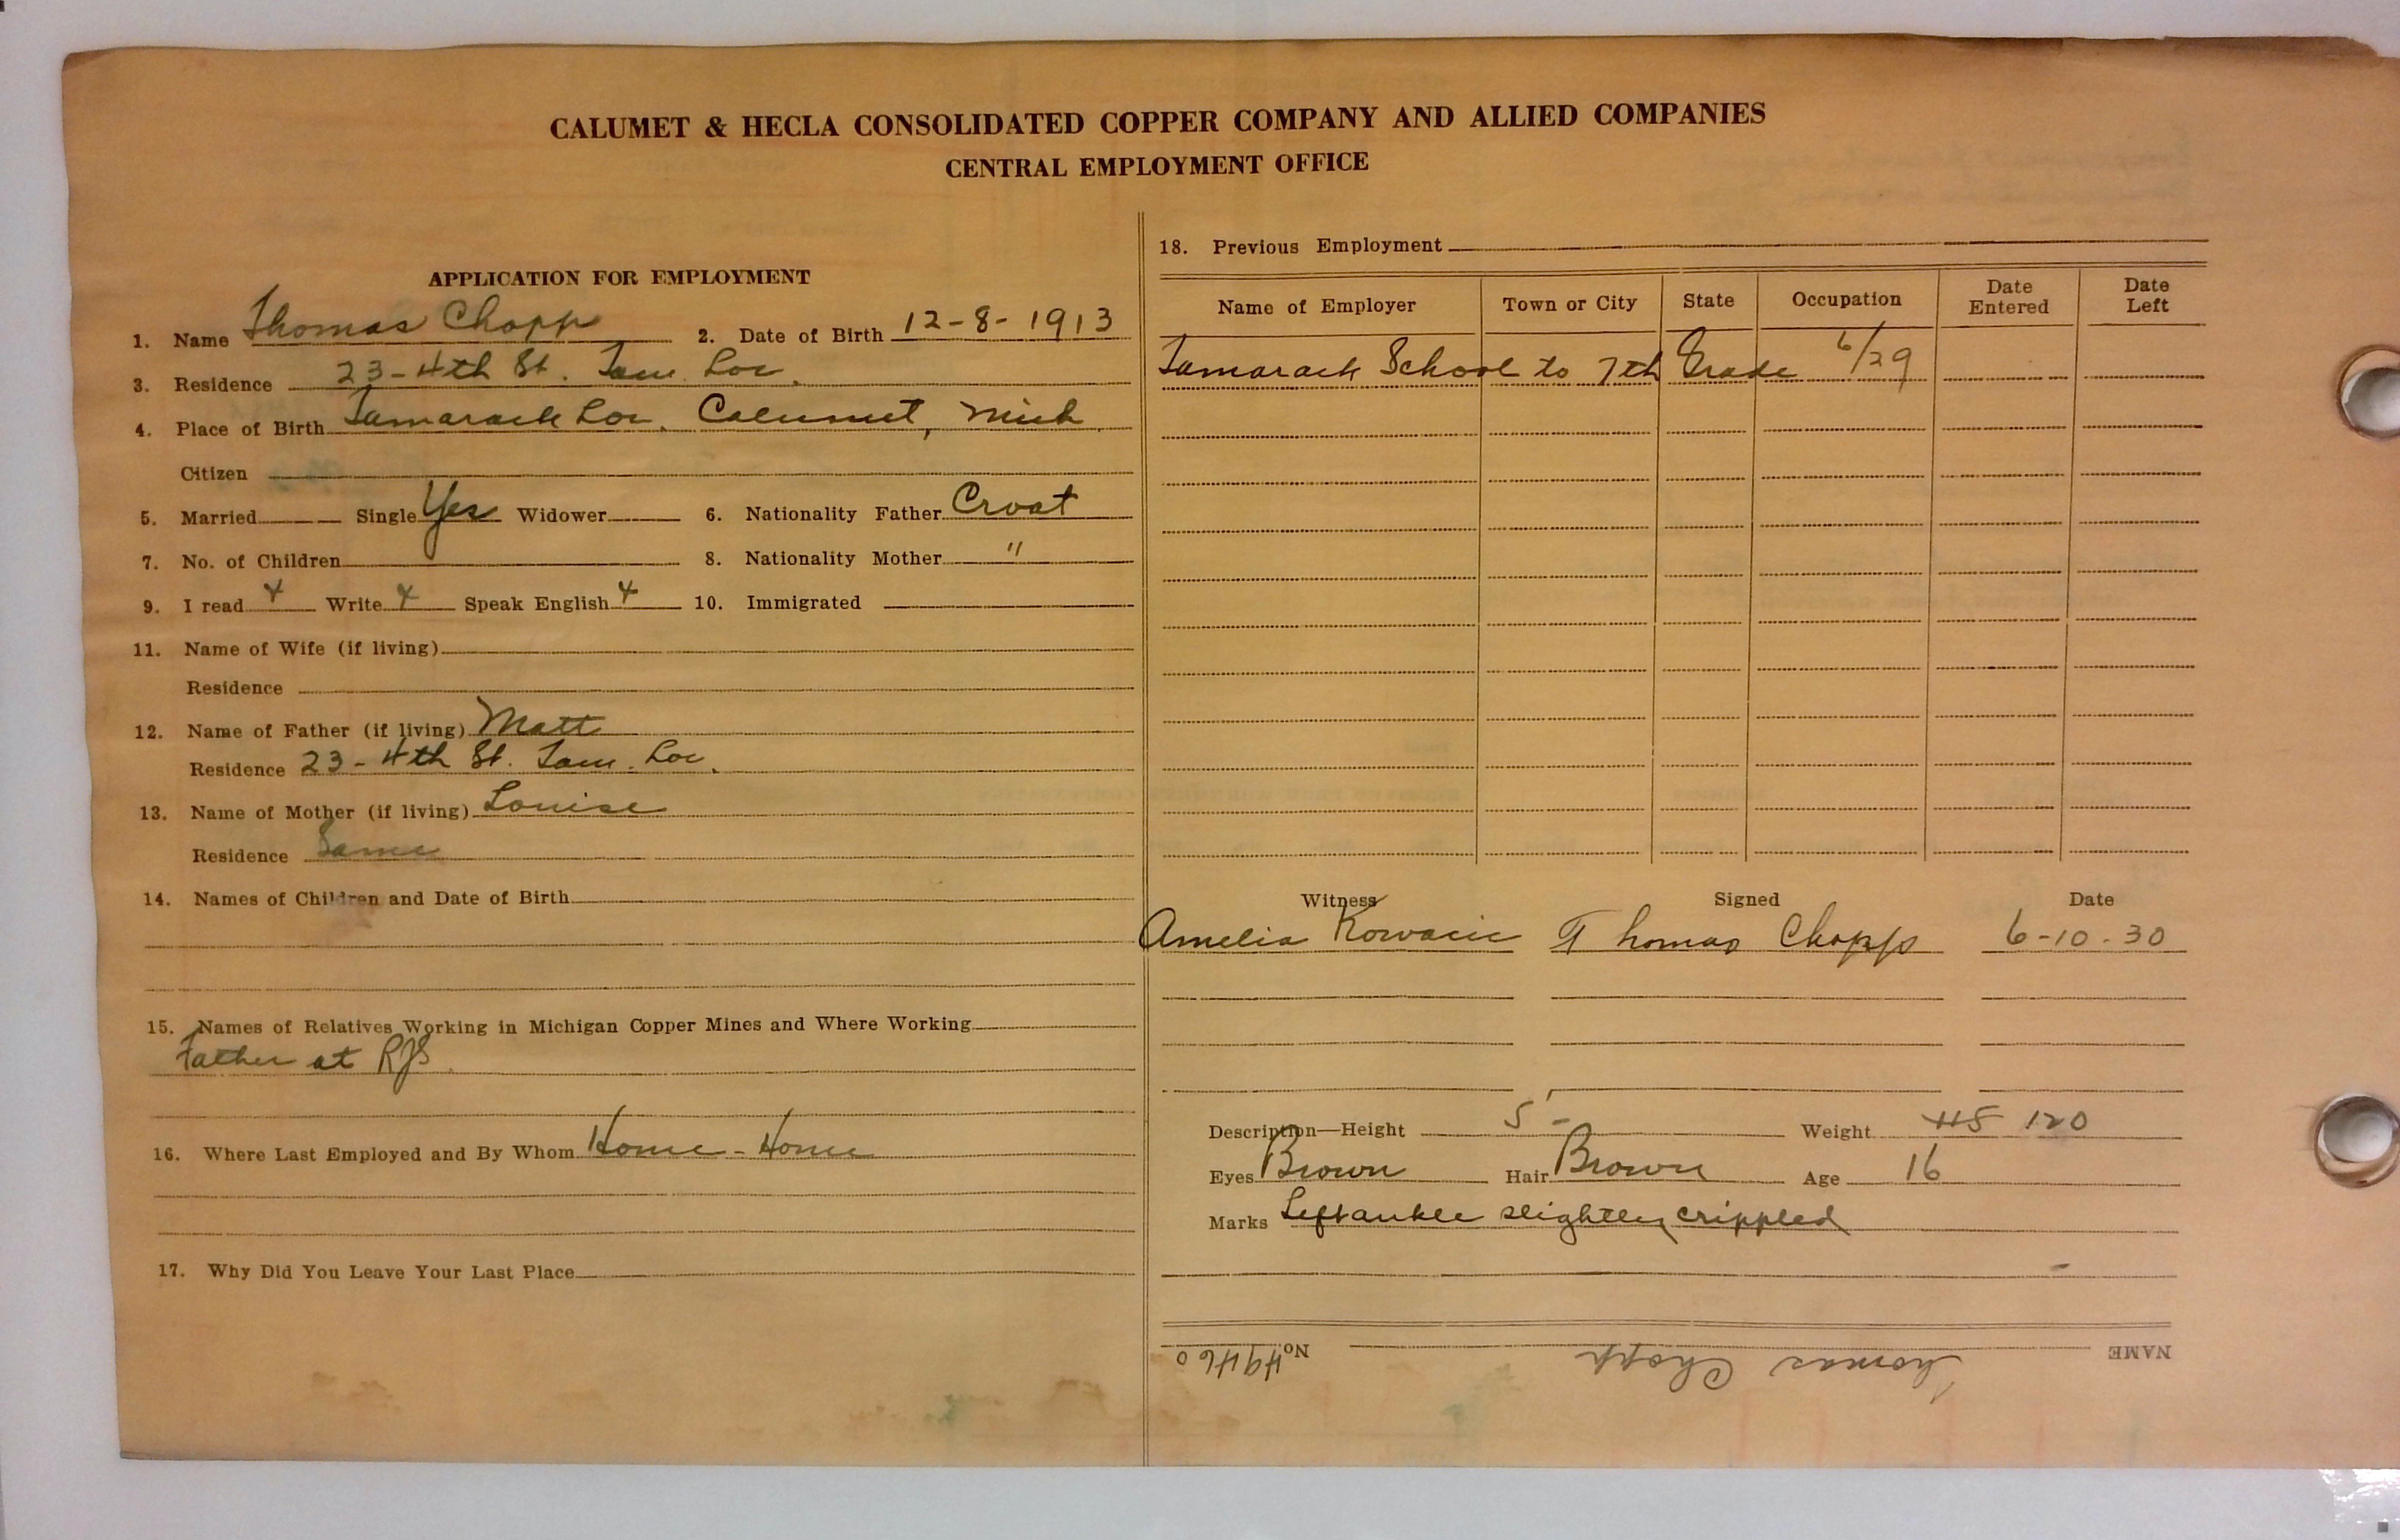 CALUMET & HECLA CONSOLIDATED COPPER COMPANY AND ALLIED COMPANIES
CENTRAL EMPLOYMENT OFFICE
APPLICATION FOR EMPLOYMENT
1. Name Thomas Chopp 2. Date of Birth 12-8-1913
3. Residence 23-4th St. Tam. Loc.
4. Place of Birth Tamarack Loc. Calumet, Mich.
Citizen
5. Married Single Yes Widower 6. Nationality Father Croat
7. No. of Children 8. Nationality Mother "
9. I read Y Write Y Speak English Y 10. Immigrated
11. Name of Wife (if living)
Residence
12. Name of Father (if living) Matt
Residence 23-4th St. Tam. Loc.
13. Name of Mother (if living) Louise
Residence Same
14. Names of Children and Date of Birth
15. Names of Relatives Working in Michigan Copper Mines and Where Working
Father at RJS.
16. Where Last Employed and By Whom Home - Home
17. Why Did You Leave Your Last Place
18. Previous Employment
Name of Employer Town or City State Occupation Date Entered Date Left
Tamarack School to 7th Grade 6/29
Witness Signed Date
Amelia Kovacic Thomas Chopp 6-10-30
Description—Height 5'- Weight 115 120
Eyes Brown Hair Brown Age 16
Marks Left ankle slightly crippled
NAME Thomas Chopp No. 49460